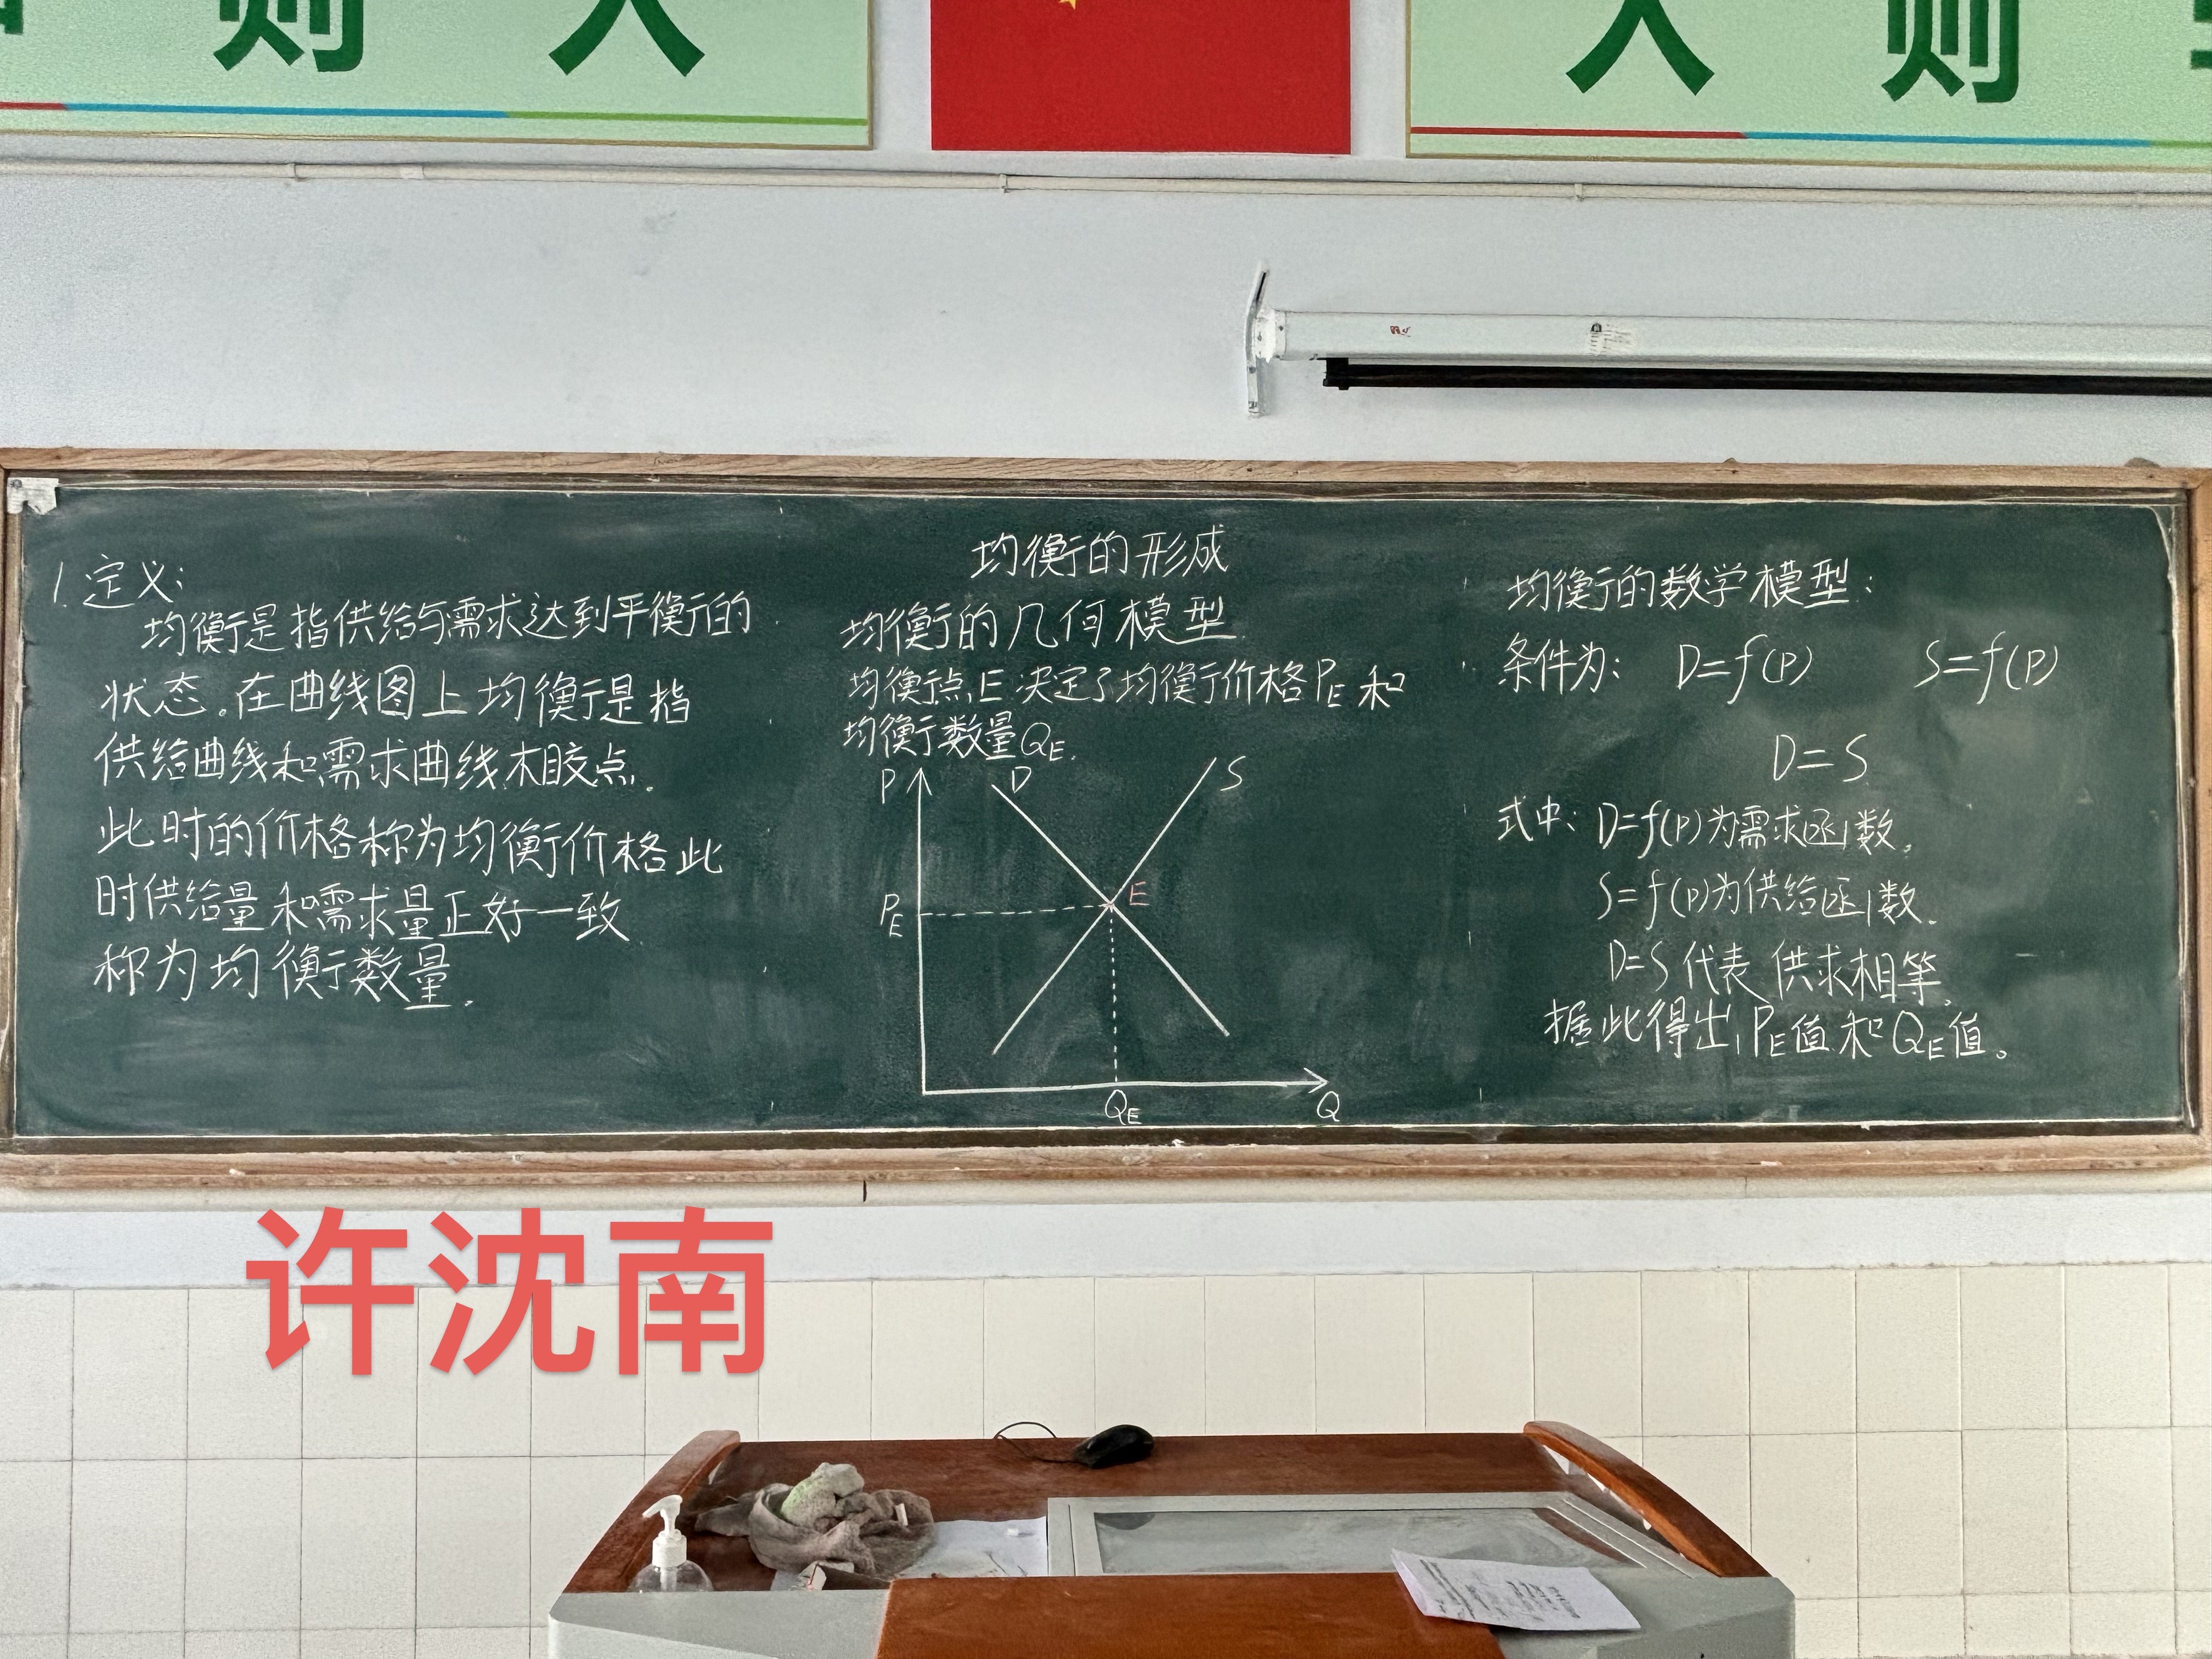 则 人
人 则
均衡的形成
1.定义:
均衡是指供给与需求达到平衡的
状态。在曲线图上均衡是指
供给曲线和需求曲线相交点.
此时的价格称为均衡价格此
时供给量和需求量正好一致
称为均衡数量.
均衡的几何模型
均衡点E决定了均衡价格PE和
均衡数量QE.
P
D
S
E
PE
QE
Q
均衡的数学模型:
条件为: D=f(P) S=f(P)
D=S
式中: D=f(P)为需求函数.
S=f(P)为供给函数.
D=S代表供求相等.
据此得出PE值和QE值。
许沈南